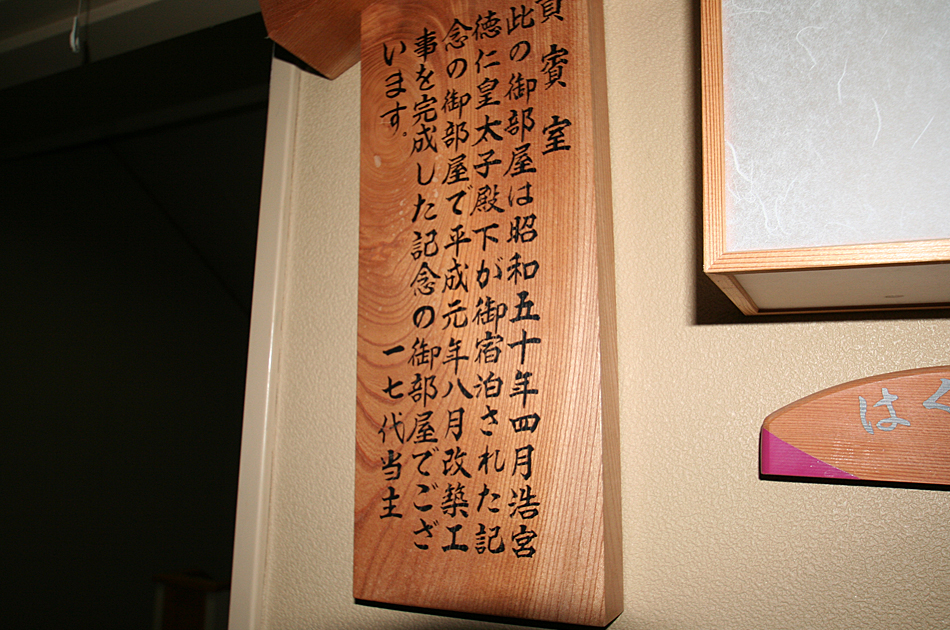 貴賓室
此の御部屋は昭和五十年四月浩宮
徳仁皇太子殿下が御宿泊された記
念の御部屋で平成元年八月改築工
事を完成した記念の御部屋でござ
います。 一七代当主
はく